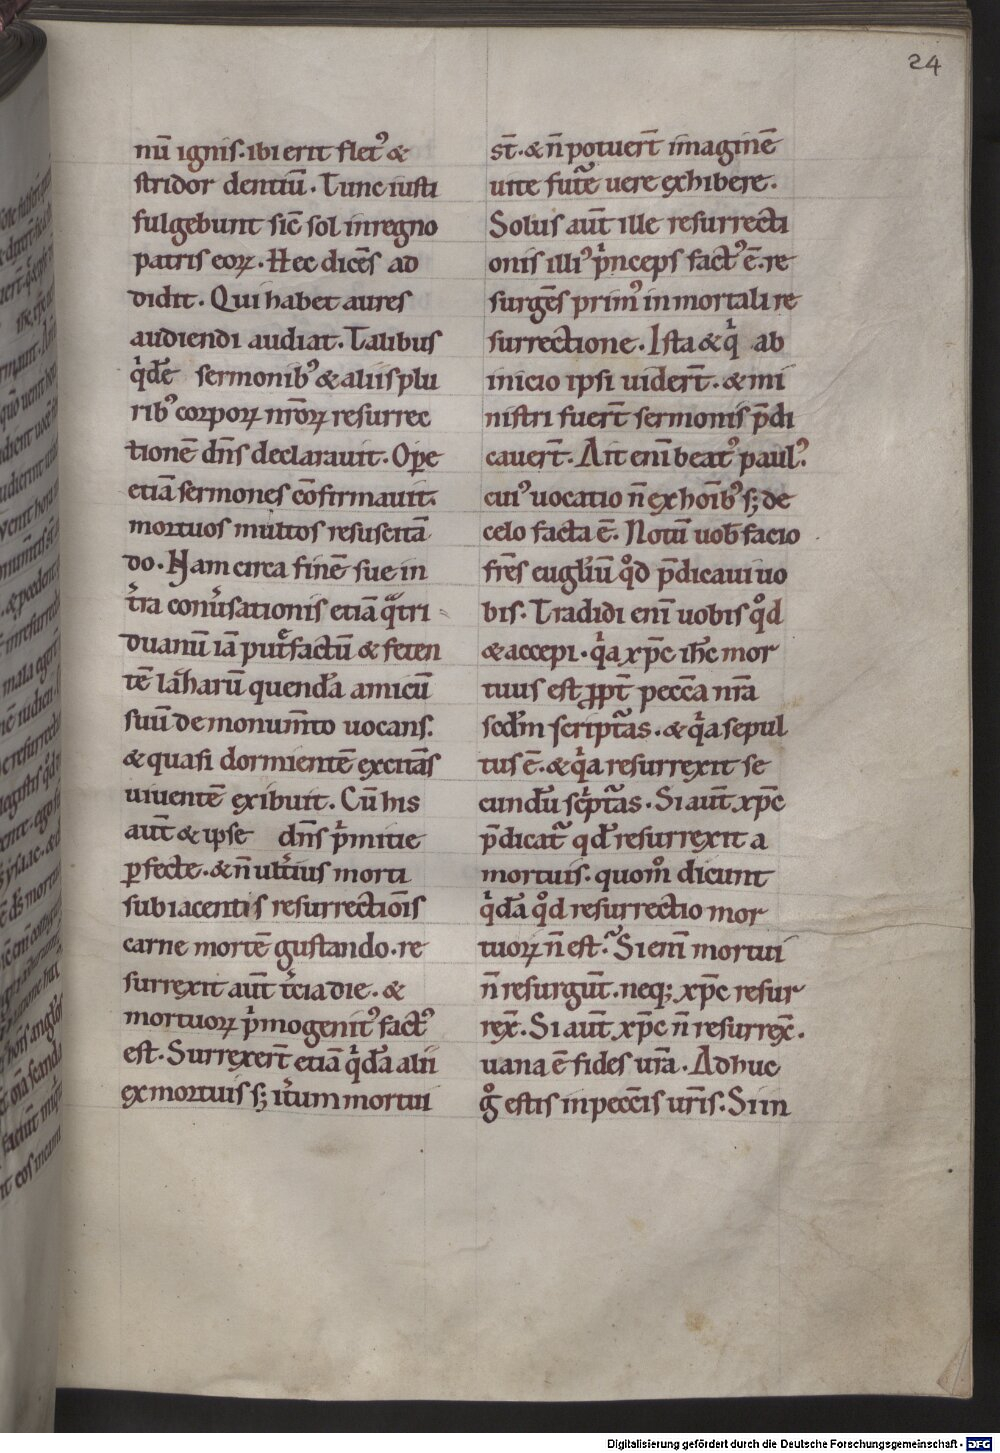 24
nū ignis. ibi erit flet᾽ &
stridor dentiū. Tunc iusti
fulgebunt sic̄ sol in regno
patris eoꝝ. Hec dicēs ad
didit. Qui habet aures
audiendi audiat. Talibus
qͥdē sermonib᾽ & aliis plu
rib᾽ corpoꝝ nr̄oꝝ resurrec
tionē dn̄s declarauit. Oꝑe
etiā sermones cōfirmauit.
mortuos multos resuscitā
do. Nam circa finē sue in
tr̄a conūsationis etiā qͣtri
duanū iā putͤfactū & feten
tē lāharū quendā amicū
suū de monum̄to uocans.
& quasi dormientē excitās
uiuentē exibuit. Cū his
aut̄ & ipse dn̄s pͥmitie
ꝑfecte. & n̄ ult̄ius morti
subiacentis resurrectiōis
carne mortē gustando. re
surrexit aut̄ t̄cia die. &
mortuoꝝ pͥmogenit᾽ fact᾽
est. Surrexer̄t etiā qͥdā alii
ex mortuis sꝫ it̄um mortui
st̄. & n̄ potuer̄t imaginē
uite fut̄e uere exhibere.
Solus aut̄ ille resurrecti
onis illi᾽ pͥnceps fact᾽ ē. re
surgēs prim᾽ in mortali re
surrectione. Ista & qͥ ab
inicio ipsi uider̄t. & mi
nistri fuer̄t sermonis p̄di
cauer̄t. Ait eni beat᾽ paul᾽.
cui᾽ uocatio n̄ ex hoīb᾽ sꝫ de
celo facta ē. Notū uob̄ facio
fr̄es eugl̄iū qͦd p̄dicaui uo
bis. Tradidi eni uobis qͦd
& accepi. qͥa xp̄c ih̄c mor
tuus est ꝓpt̄ pecc̄a nr̄a
scd̄m script̄as. & qͥa sepul
tus ē. & qͥa resurrexit se
cundū scͥpt̄as. Si aut̄ xp̄c
p̄dicat̄ qd̄ resurrexit a
mortuis. quom̊ dicunt
qͥdā qͦd resurrectio mor
tuoꝝ n̄ est. Si eni mortui
n̄ resurgūt. neqꝫ xp̄c resur
rex̄. Si aut̄ xp̄c n̄ resurrex̄.
uana ē fides ur̄a. Adhuc
gͦ estis in pecc̄is ur̄is. Si in
Digitalisierung gefördert durch die Deutsche Forschungsgemeinschaft - DFG